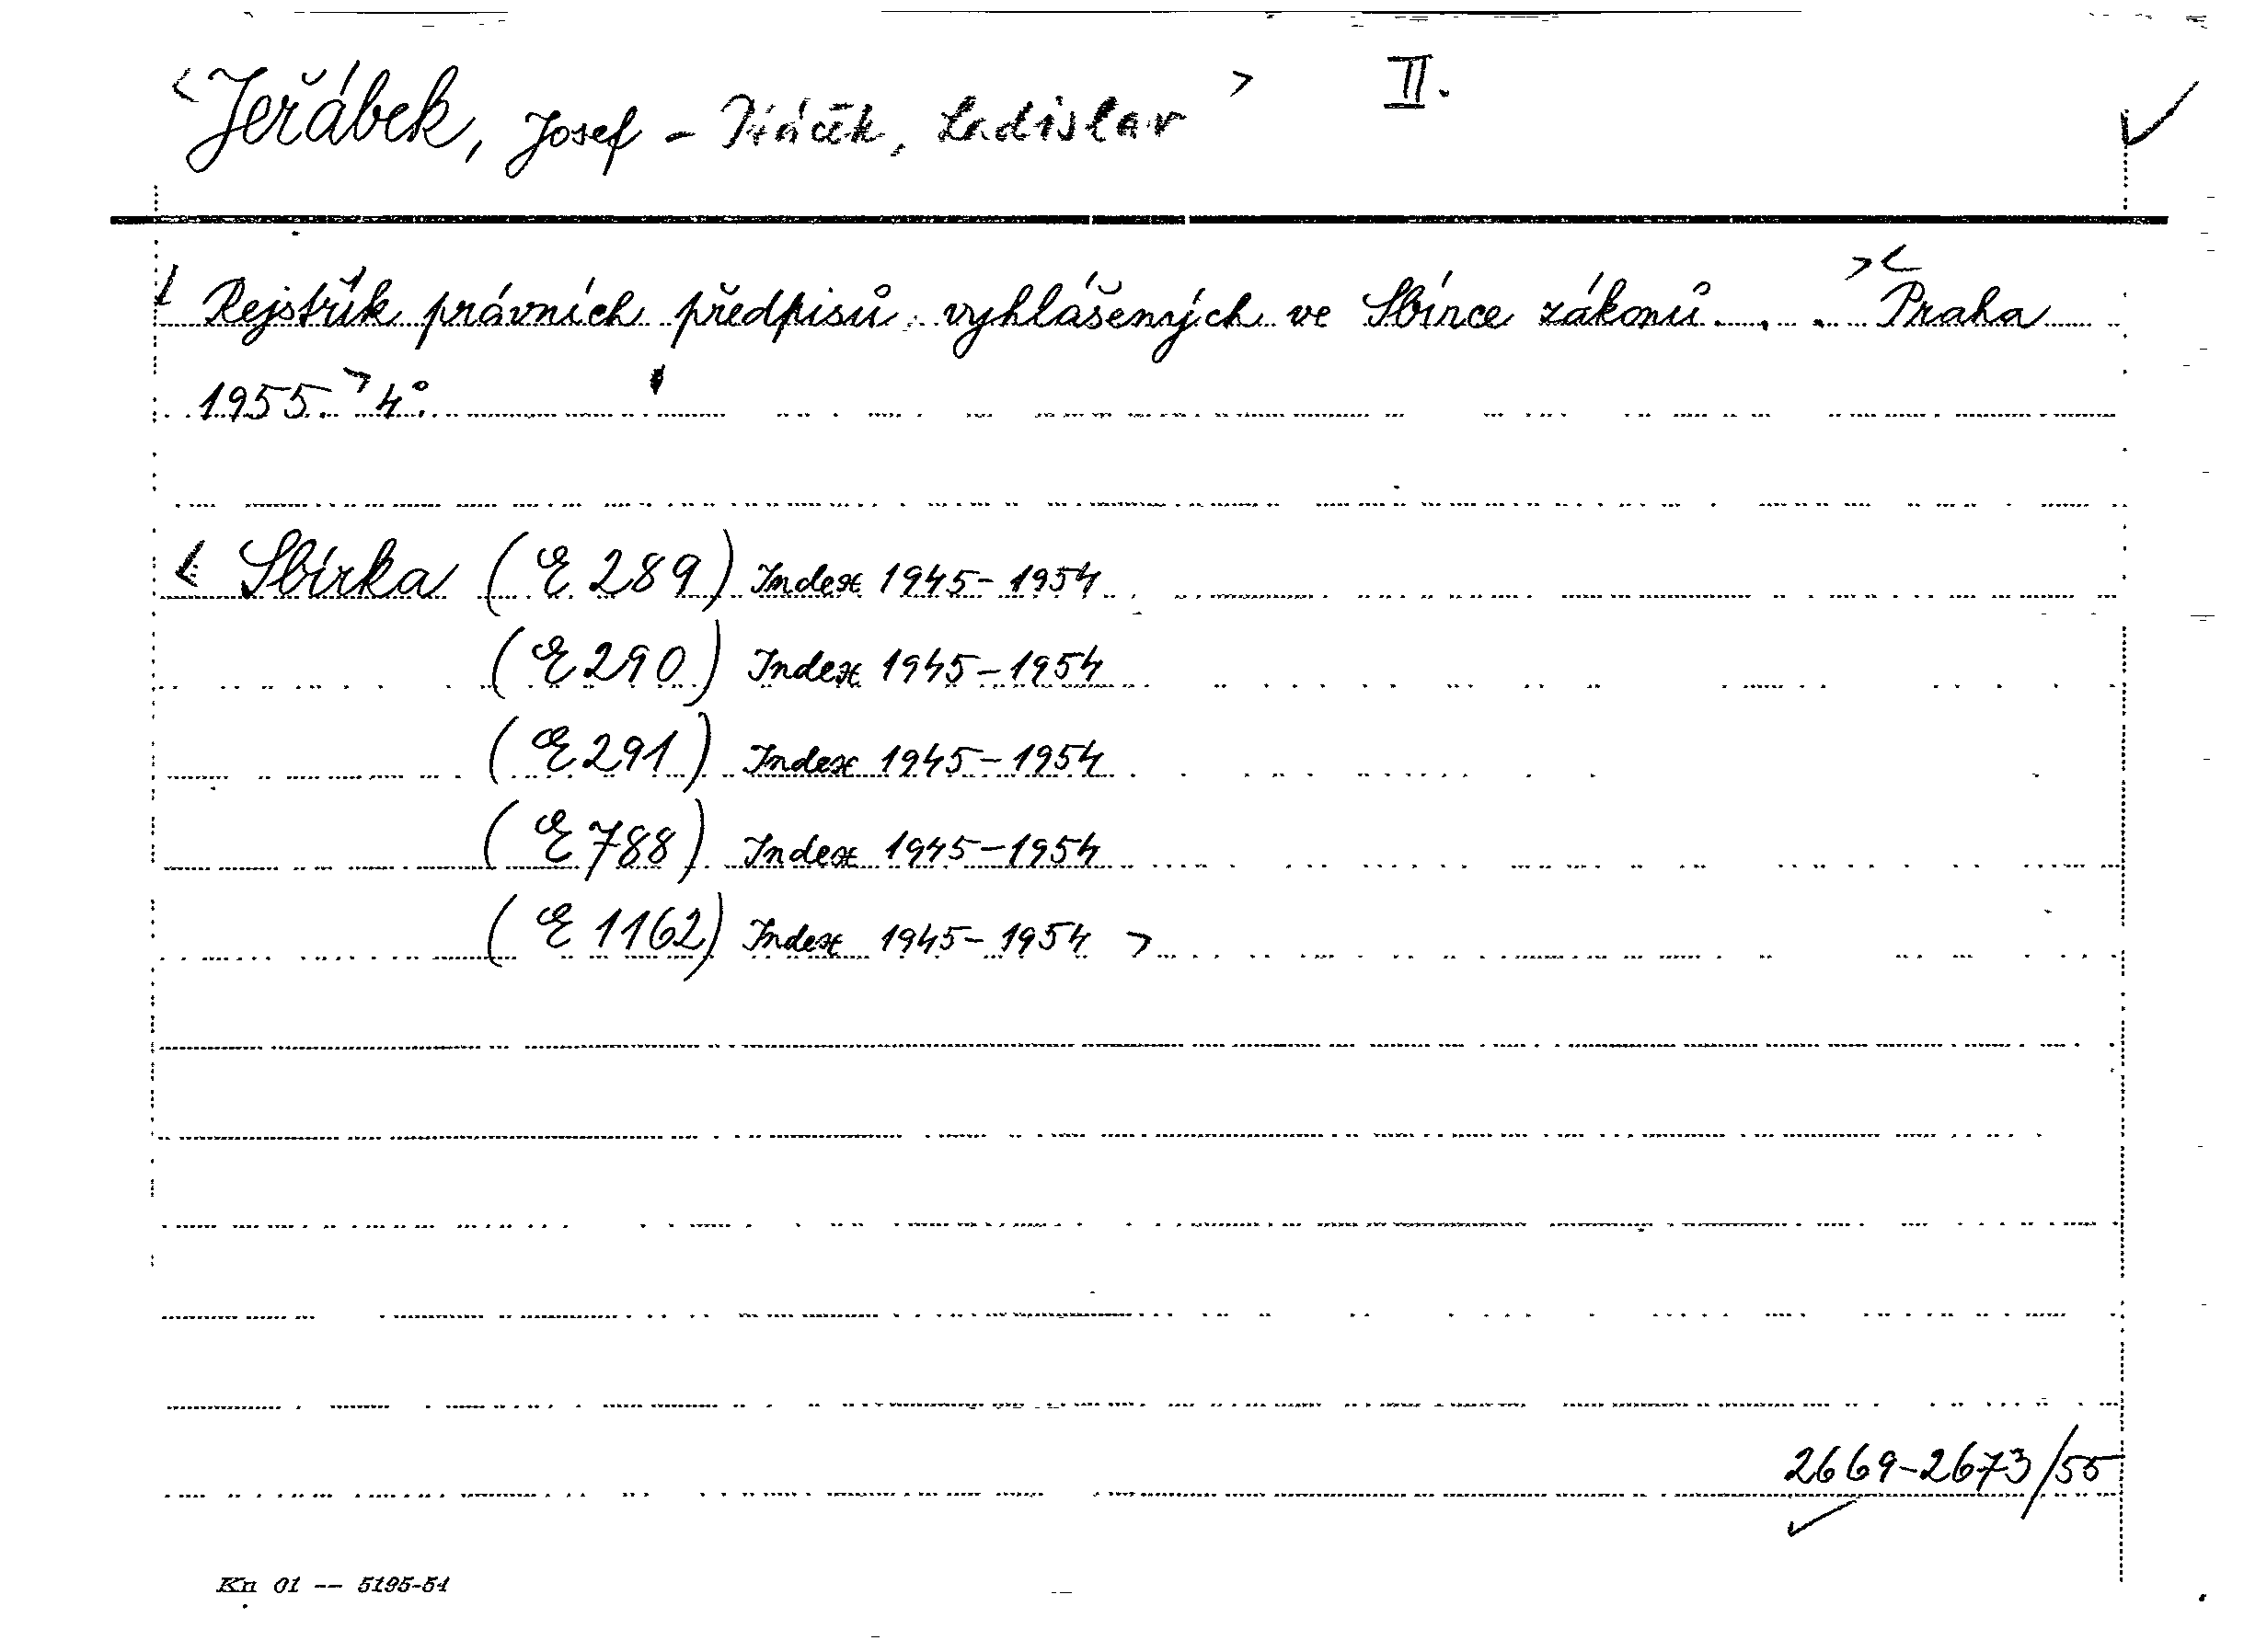 < Jeřábek, Josef - Ptáček, Ladislav > II.
Rejstřík právních předpisů vyhlášených ve Sbírce zákonů. . . >< Praha
1955. > 4°.
< Sbírka (E 289) Index 1945-1954
(E 290) Index 1945-1954
(E 291) Index 1945-1954
(E 788) Index 1945-1954
(E 1162) Index 1945-1954 >
2669-2673/55
Kn 01 -- 5195-54